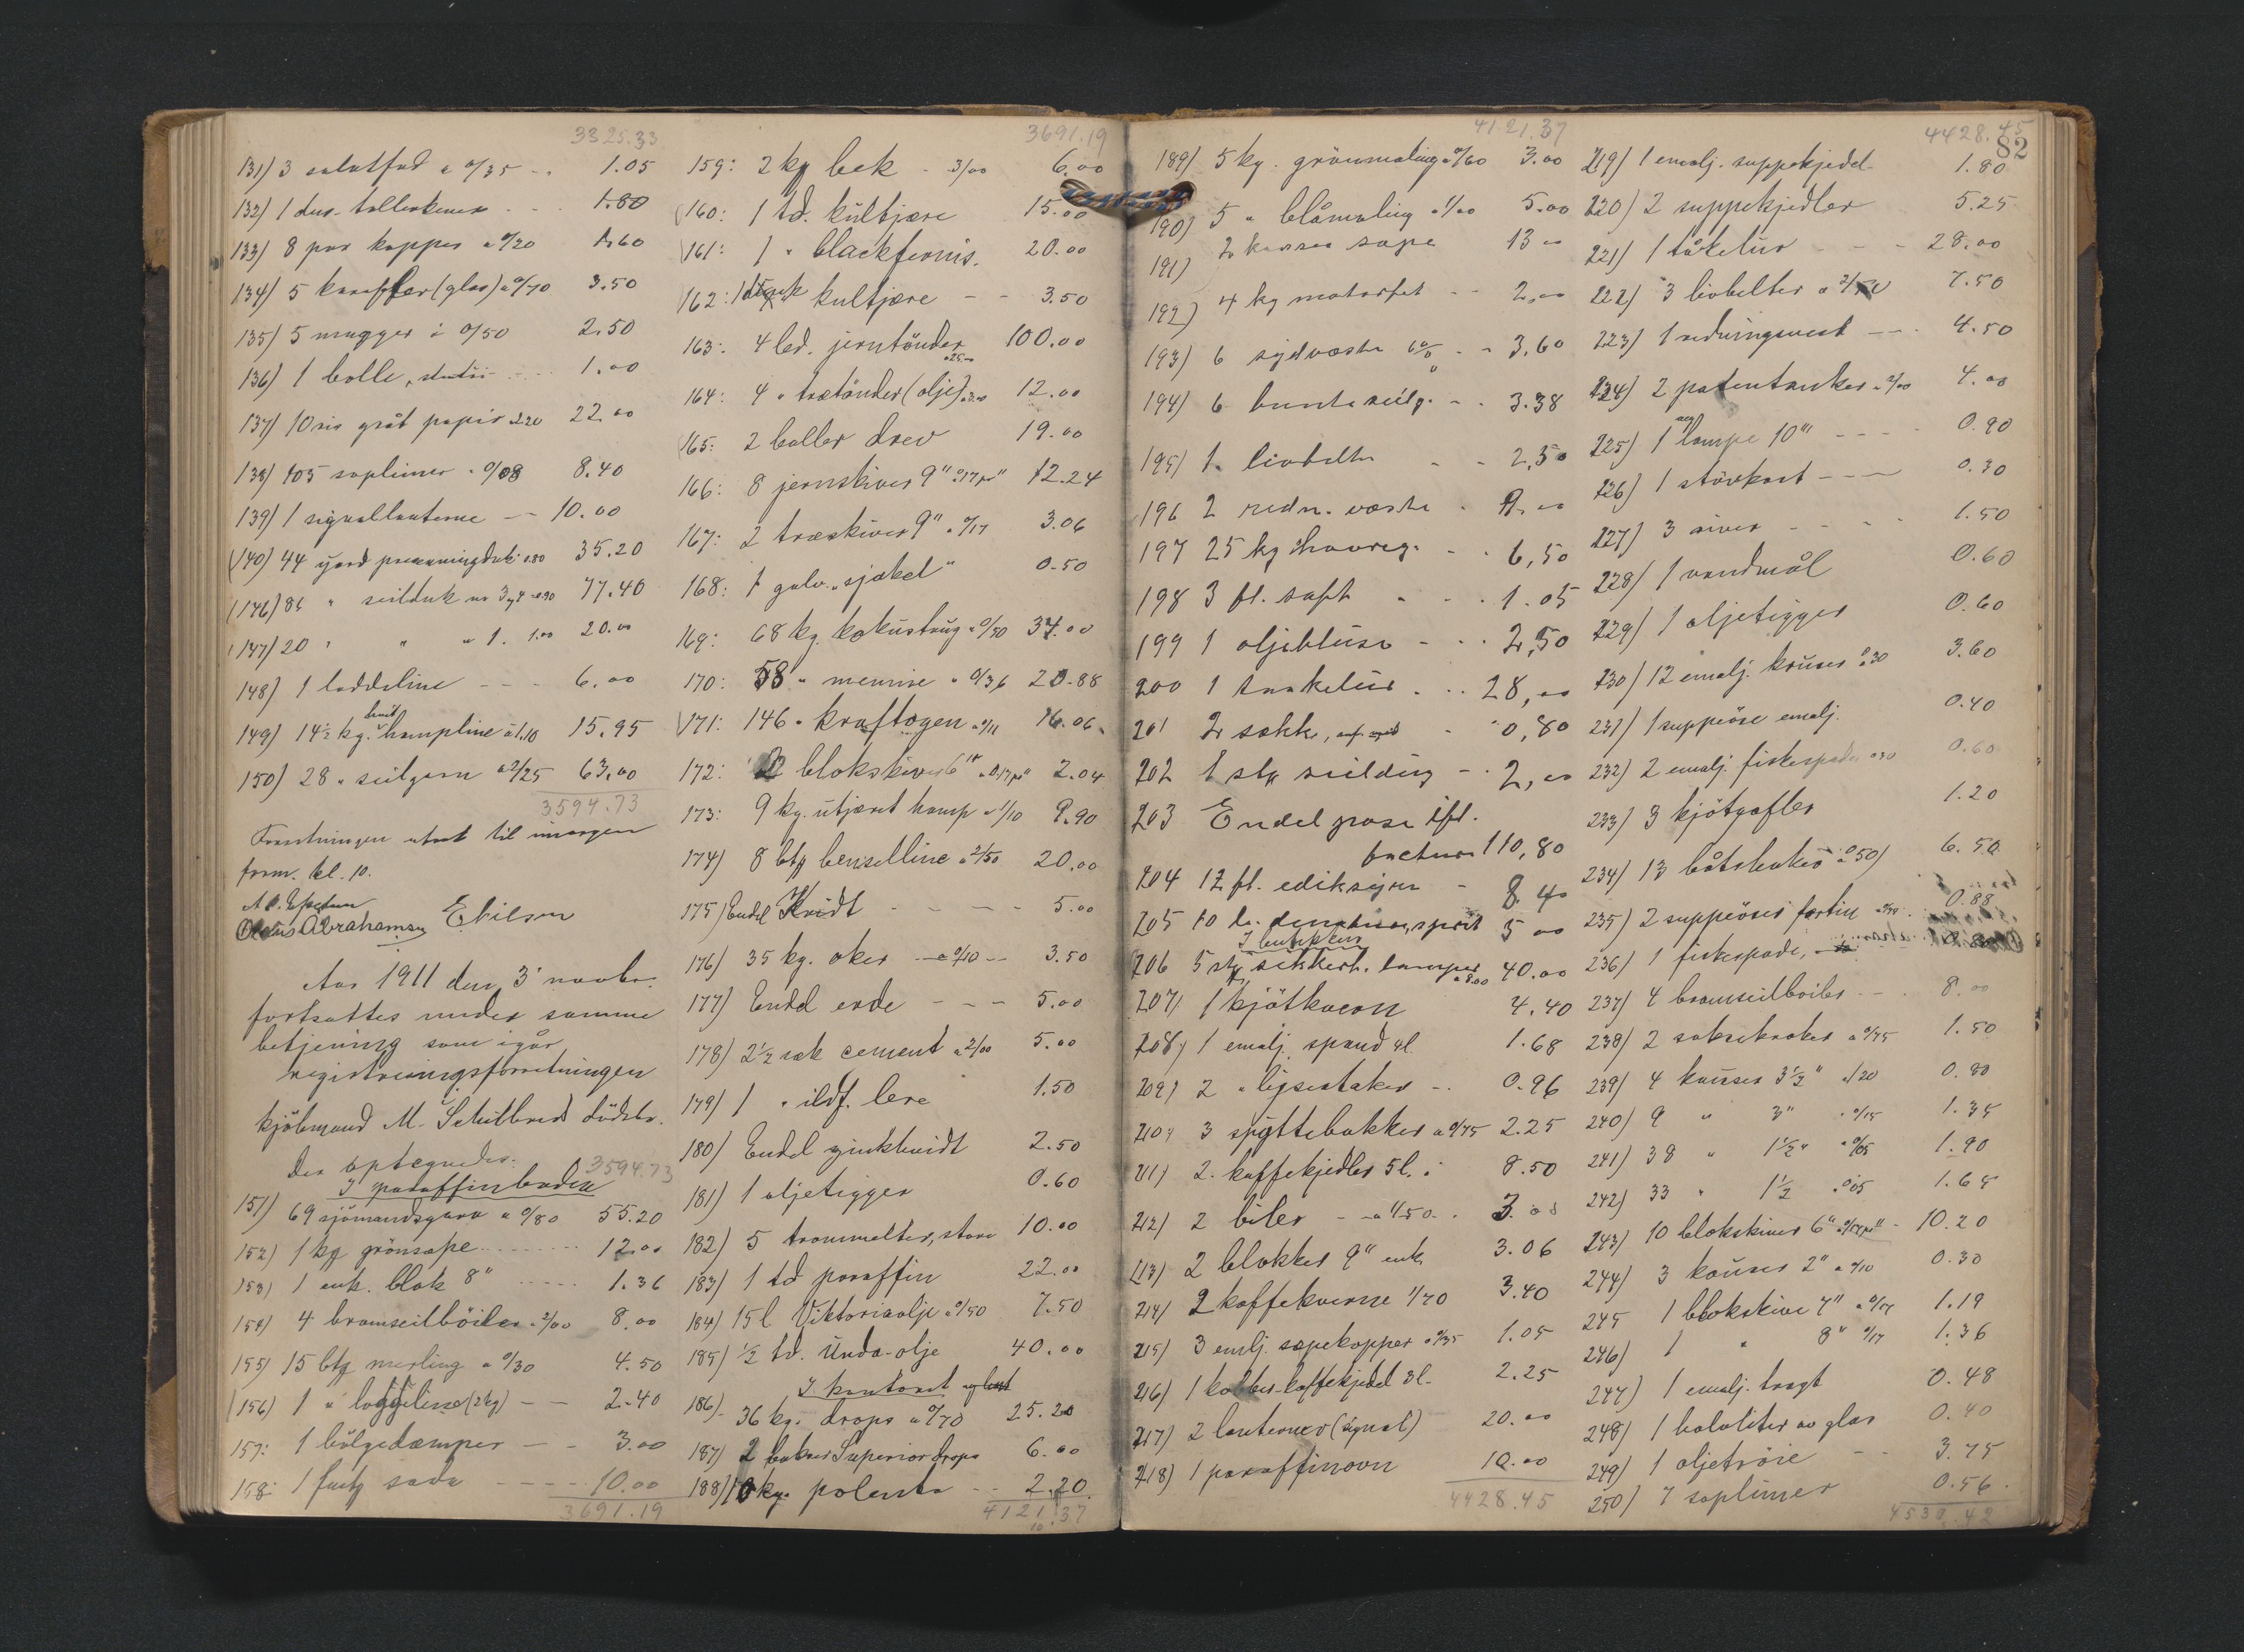 3325.33
131) 3 salatfad a 0/35 - . 1.05
132) 1 dus. tallerkener . - . 1.80
133) 8 par kopper a 0/20 1.60
134) 5 karafler (glas) a 0/70 3.50
135) 5 mugger à 0/50 2.50
136) 1 bolle, 1.00
137) 10 ris gråt papir 2.20 22.00
138) 105 soplimer a 0/08 8.40
139) 1 signallanterne - - 10.00
140) 44 yard presenningduk 0.80 35.20
146) 86 " seilduk no 3 y 4 0.90 77.40
147) 20 " " " 1. 1.00 20.00
148) 1 loddeline - - - 6.00
149) 14½ kg. hvit hampline à 1.10 15.95
150) 28 " seilgarn a 2/25 63.00
3594.73
Forretningen utsat til imorgen
form. kl. 10.
Olaus Abrahamsen Ekilsen
Aar 1911 den 3' novbr.
fortsattes under samme
betjening som igår
registreringsforretningen
kjöbmand M. Schilbreds dödsbo.
Der optegnedes:
3594.73
I paraffinboden
151) 69 sjömandsgarn a 0/80 55.20
152) 1 kg grönsape 12.00
153) 1 enk. blok 8" 1.36
154) 4 bramseilböiler a 2/00 8.00
155) 15 btg merling a 0/30 4.50
156) 1 " loggline (2kg) - - 2.40
157: 1 bölgedæmper - - 3.00
158: 1 fustg soda - - - - 10.00
3691.19
3691.19
159: 2 kg bek - 3/00 6.00
160: 1 td. kultjære 15.00
161: 1 " blackfernis. 20.00
162: 1 dunk kultjære - - 3.50
163: 4 led. jerntönder a 25.- 100.00
164: 4 " trætönder (olje) a 3.00 12.00
165: 2 baller drev 19.00
166: 8 jernskiver 9" a 0.17 pr" 12.24
167: 2 træskiver 9" a 0/17 3.06
168: 1 galv. "sjakel" 0.50
169: 68 kg. kokustaug a 0/50 34.00
170: 58 " mennie a 0/36 20.88
171: 146 " kraftogen a 0/11 16.06
172: 2 blokskiver 6" a 0.17 pr" 2.04
173: 9 kg. utjæret hamp a 1/10 9.90
174) 8 btg benselline a 2/50 20.00
175) Endel Kridt - - - - 5.00
176) 35 kg. oker - a 0/10 - - 3.50
177) Endel erde - - - 5.00
178) 2½ sæk cement a 2/00 5.00
179) 1 " ildf. lere 1.50
180) Endel zinkhvidt 2.50
181) 1 oljetigger 0.60
182) 5 trommelter, store 10.00
183) 1 td paraffin 22.00
184) 15 l Viktoriaolje a 0/50 7.50
185) ½ td. Unda-olje 40.00
I kontoret
186) 36 kg. drops a 0/70 25.20
187) 2 bokser Superior drops 6.00
188) 10 kg. polenta - - 2.20
4121.37
10
4121.37
189) 5 kg. grönmaling a 0/60 3.00
190) 5 " blåmaling a 1/00 5.00
191) 2 kasser sape 13 00
192) 4 kg motorfet - - 2,00
193) 6 sydvæster - - 3.60
194) 6 bunte seilg. - - 3.38
195) 1. livbelte - - 2,50
196 2 redn. væste - 9.00
197 25 kg havreg. - - 6,50
198 3 fl. saft - - - 1.05
199 1 oljebluse - - - 2,50
200 1 taakelur - - - 28,00
201 2 sække, - 0,80
202 1 stk seilding - - 2,00
203 Endel pose ifl.
factura 110,80
204 12 fl. ediksyre - 8.40
205 10 l. denatur. sprit 5 00
I butikken
206 5 stk sikkerh. lamper a 8.00 40.00
207) 1 kjötkvern 4.40
208) 1 emalj. spand 1.68
209) 2 " lysestaker - . 0.96
210) 3 spyttebakker a 0/75 2.25
211) 2. kaffekjedler 5 l. 8.50
212) 2 biler - - a 1/50 - . 3.00
213) 2 blokker 9" enk. 3.06
214) 2 kaffekverne 1/70 3.40
215) 3 emlj. sæpekopper a 0/35 1.05
216) 1 kobber-kaffekjedel 3l. 2.25
217) 2 lanterner (signal) 20.00
218) 1 paraffinovn 10.00
4428.45
4428.45
82
219) 1 emalj. suppekjedel 1.80
220) 2 suppekjedler 5.25
221) 1 tåkelur - - - 28.00
222) 3 livbelter a 2/50 7.50
223) 1 redningsvest - - - 4.50
224) 2 patentanker a 2/00 4.00
225) 1 lampe 10''' - - - - 0.90
226) 1 stövkost - - - 0.30
227) 3 river - - - - 1.50
228) 1 vandmål 0.60
229) 1 oljetigger 0.60
230) 12 emalj. kruser a 0.30 3.60
231) 1 suppeöse emalj. 0.40
232) 2 emalj. fiskespader 0.30 0.60
233) 3 kjötgafler 1.20
234) 13 båtshaker a 0.50) 6.50
235) 2 suppeöser fortin 0.88
236) 1 fiskespade,
237) 4 bramseilböiler - - . 8.00
238) 2 saksekroker a 0/75 1.50
239) 4 kauser 3½" a/20 0.80
240) 9 " 3" a 0/15 1.35
241) 38 " 1½" a 0/05 1.90
242) 33 " 1½ a 0.05 1.65
243) 10 blokskiver 6" a 0/17 pr" - 10.20
244) 3 kauser 2" a 0/10 0.30
245 1 blokskive 7" a 0/17 1.19
246) 1 " 8" 0/17 1.36
247) 1 emalj. tragt 0.48
248) 1 halvliter av glas 0.40
249) 1 oljetröie - - 3.75
250) 7 soplimer 0.56